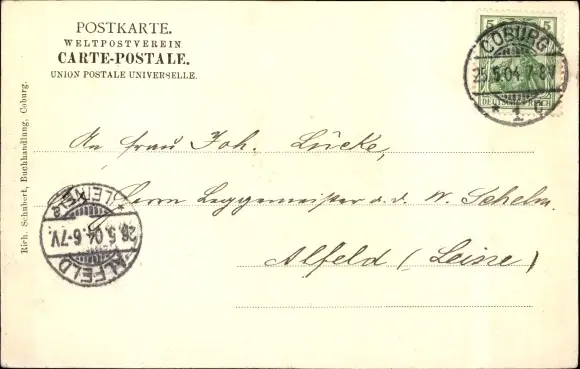 POSTKARTE.
WELTPOSTVEREIN
CARTE-POSTALE.
UNION POSTALE UNIVERSELLE.
5 5
DEUTSCHES REICH
COBURG
25.5.04. 7-8V
* 1 c
An Frau Joh. Lücke,
Herrn Leggemeister a. d. W. Schelm.
Alfeld (Leine)
ALFELD
26.5.04. 6-7V.
* LEINE *
Rich. Schubert, Buchhandlung, Coburg.